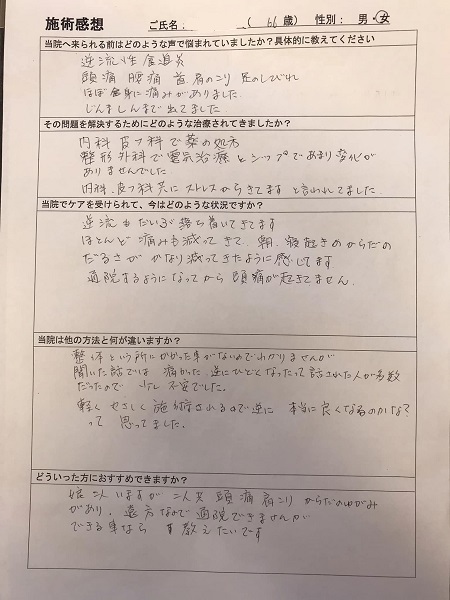 施術感想 ご氏名： （ 66 歳） 性別： 男・女
当院へ来られる前はどのような声で悩まれていましたか？具体的に教えてください
逆流性食道炎
頭痛 腰痛 首 肩のこり 足のしびれ
ほぼ全身に痛みがありました。
じんましんまで出てました。
その問題を解決するためにどのような治療されてきましたか？
内科 皮フ科で薬の処方
整形外科で電気治療とシップであまり変化が
ありませんでした
内科、皮フ科共にストレスからきてますと言われてました。
当院でケアを受けられて、今はどのような状況ですか？
逆流もだいぶ落ち着いてきてます
ほとんど痛みも減ってきて、朝、寝起きのからだの
だるさがかなり減ってきたように感じてます
通院するようになってから頭痛が起きてません。
当院は他の方法と何が違いますか？
整体という所にかかった事がないのでわかりませんが
聞いた話では 痛かった、逆にひどくなったって話された人が多数
だったので 少し不安でした。
軽くやさしく施術されるので逆に 本当に良くなるのかな？
って 思ってました。
どういった方におすすめできますか？
娘二人いますが 二人共 頭痛 肩こり からだのゆがみ
があり、遠方なので通院できませんが
できる事なら 教えたいです